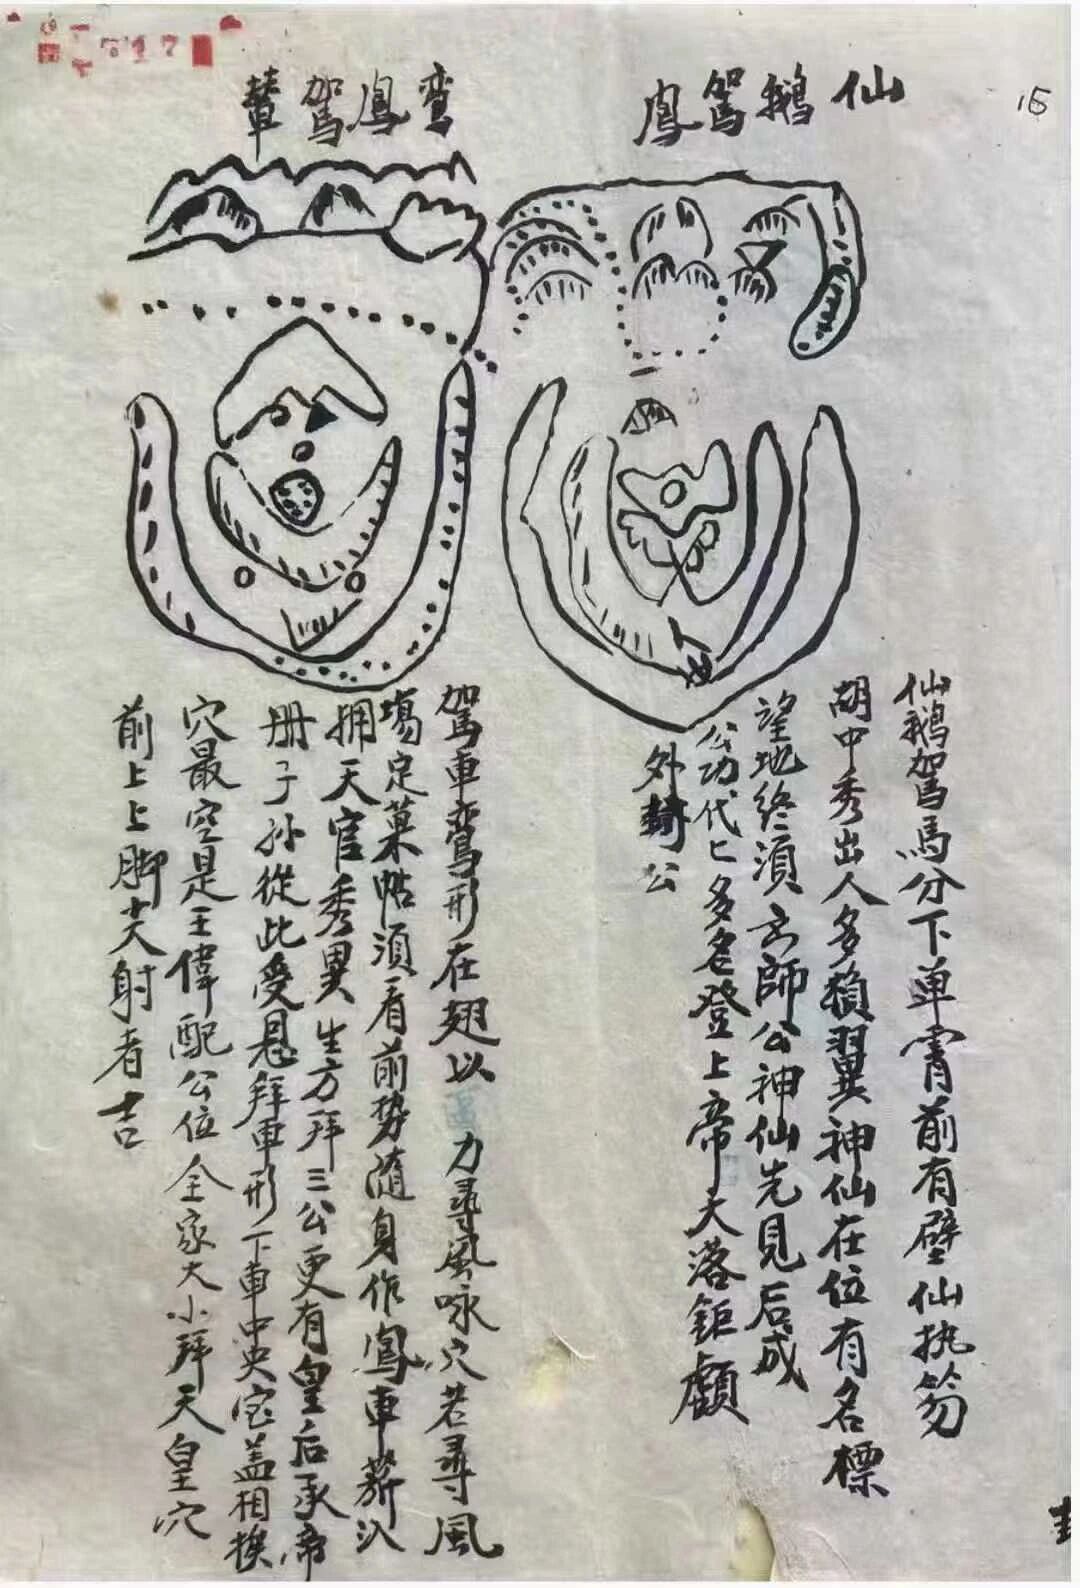 15
仙鵝駕鳳
仙鵝駕馬分下單霄前有壁仙执笏
胡中秀出人多損翼神仙在位有名標
望地终須玄師公神仙先見后成
公功代亡多名登上帝大落鉅顧
外 公
鸞鳳駕輦
駕車鸞形在翅以 力尋風咏穴若尋風
塲定菓帖須看前势隨身作鳳車薪汃
拥天官秀異生方拜三公更有皇后承帝
册子孙從此受恳拜車形下車中央宝盖相挨
穴最空是王偉配公位全家大小拜天皇穴
前上上脚尖射者吉
717